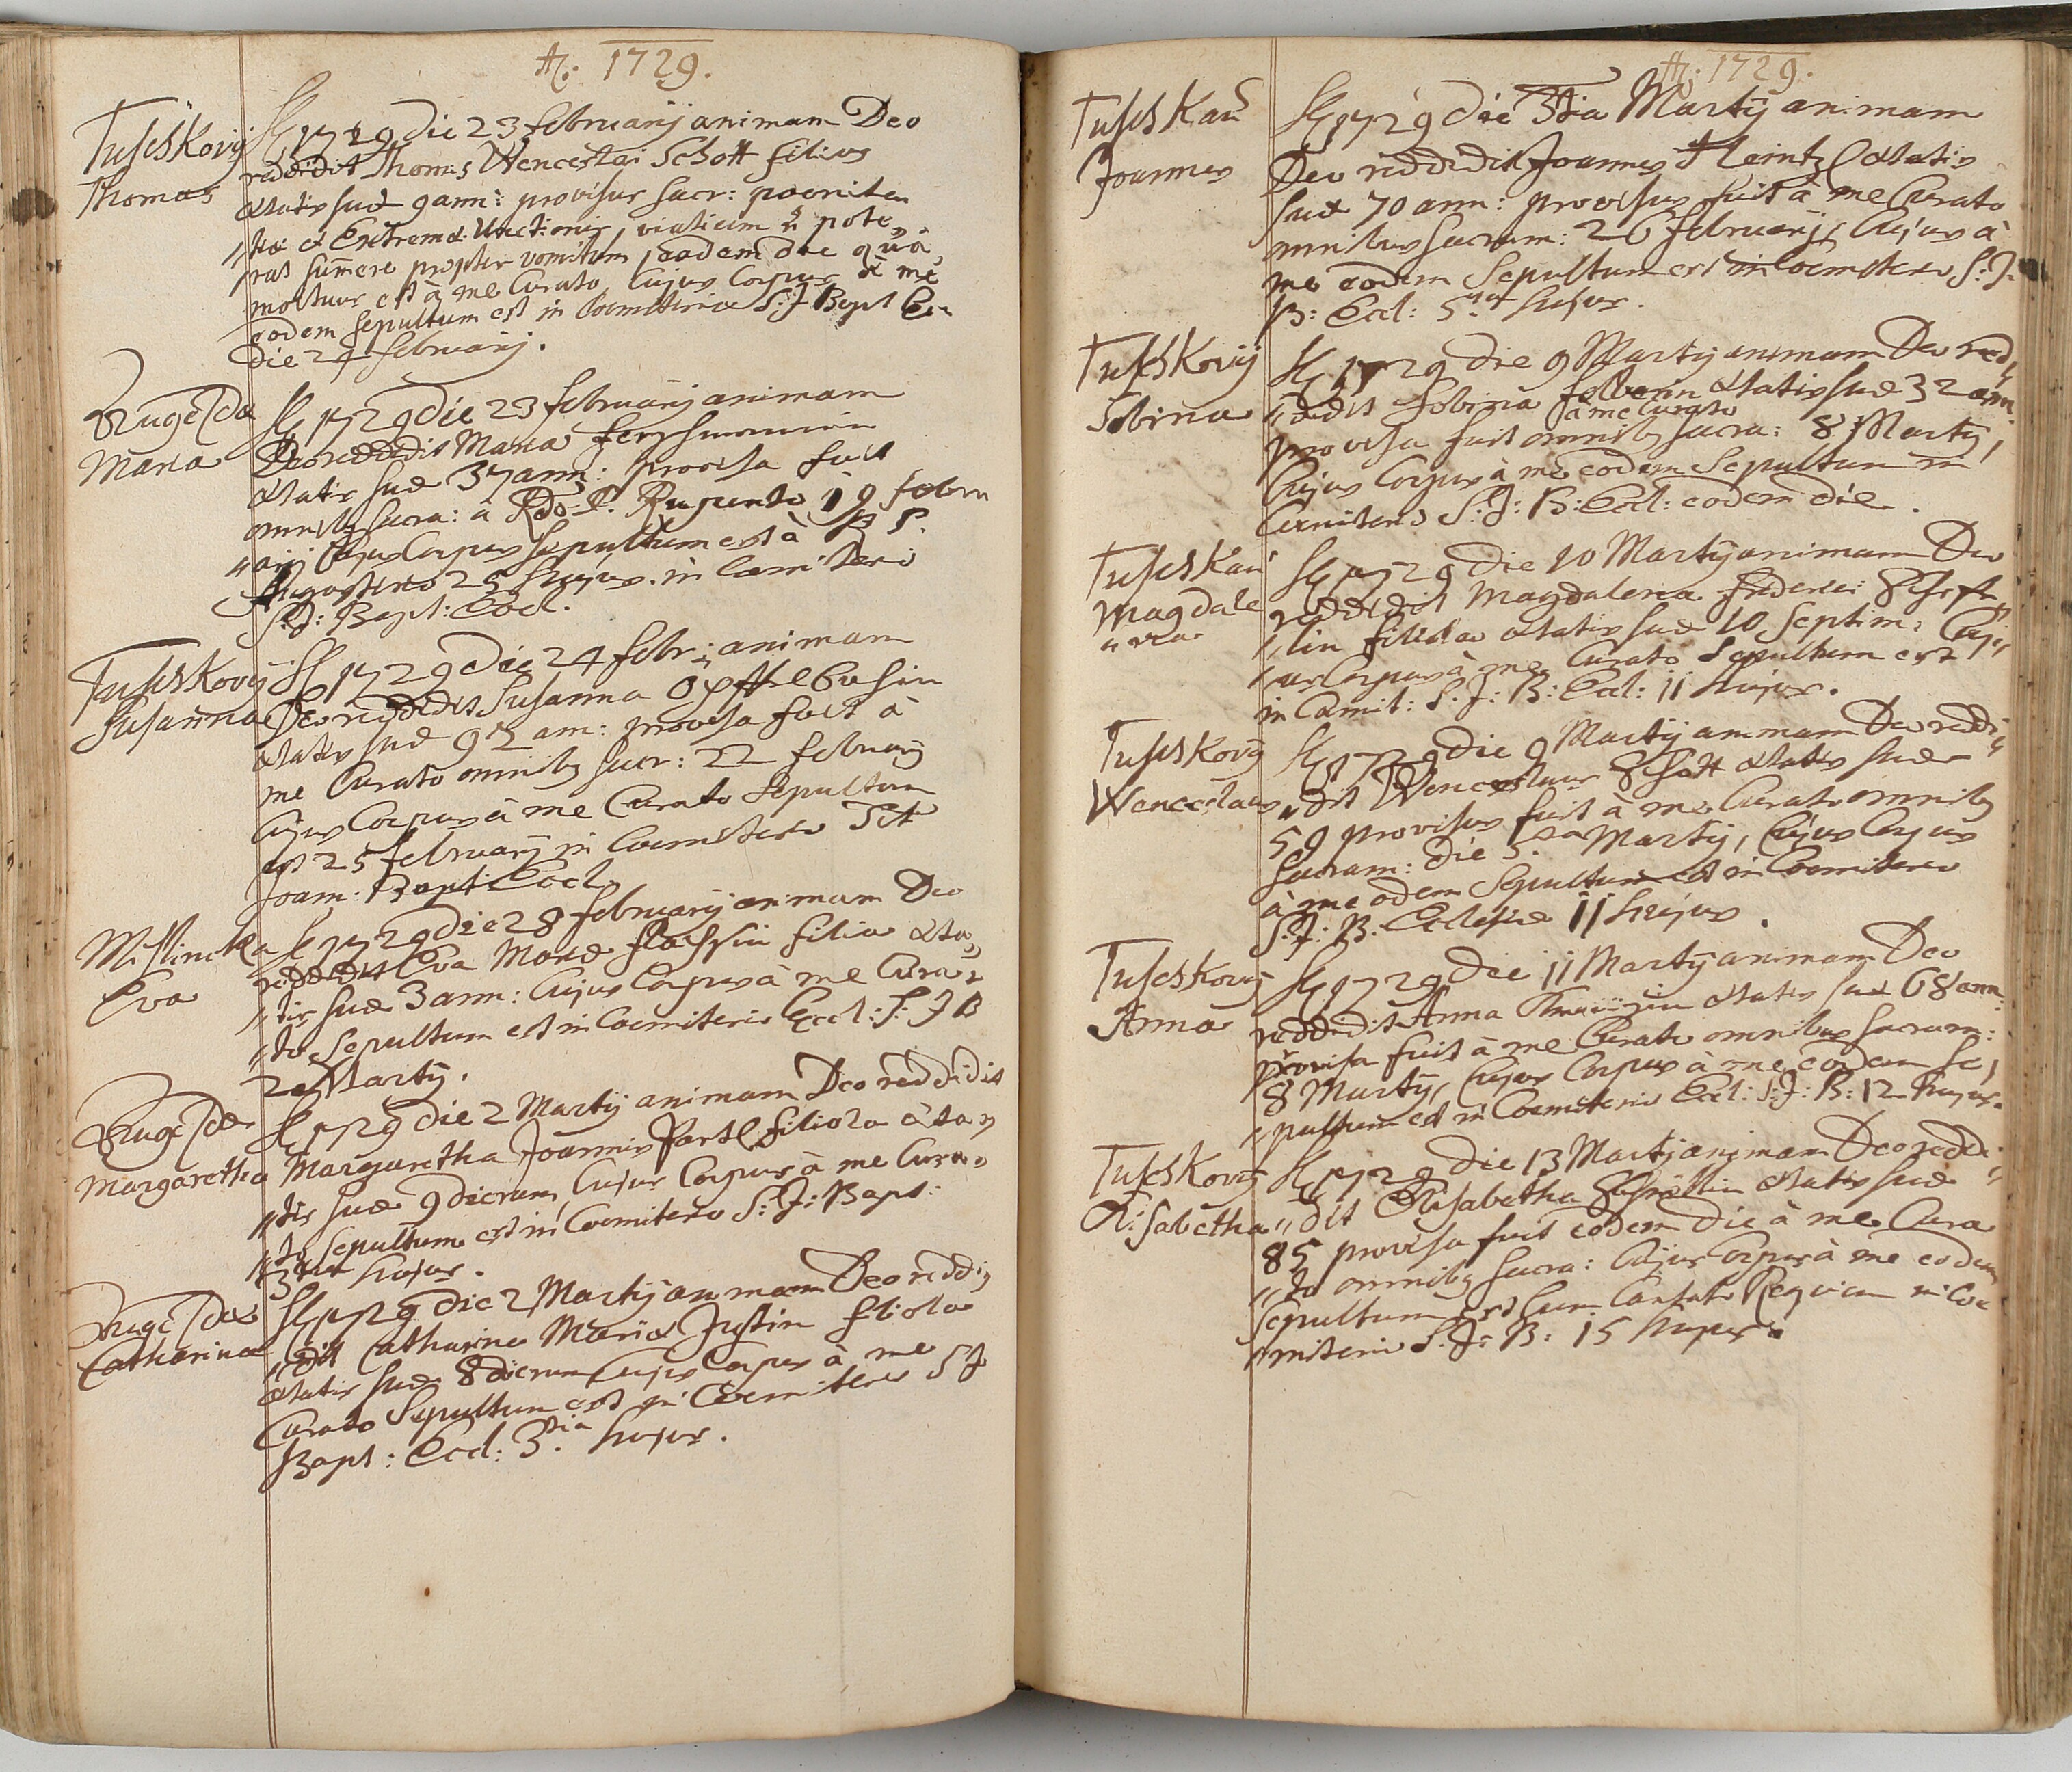 A: 1729.
Tuschkovÿ
Thomas
A 1729 die 23 februarÿ animam Deo
reddidit Thomas Wenceslai Schott filius
ætatis suæ 9 ann: provisus sacr: poeniten
tiæ et Extremæ Unctionis, viaticum n pote
rat sumere propter vomitum, eadem die quâ
mortuus est à me Curato, Cujus Corpus à me
eodem sepultum est in Coemiterio S: J Bapt
die 24 februarÿ.
Maria
A 1729 die 23 februarÿ animam
Deo reddidit Maria
ætatis suæ 37 ann: provisa fuit
omnibg sacra: à Rdo P. Ruperto 19 febru
arÿ Cujus Corpus sepultum est à P
Augustino 25 hujus in Coemiterio
S: J: Bapt: Eccl.
Tuschkovÿ
Susanna
A 1729 die 24 febr: animam
Deo reddidit Susanna
ætatis suæ ann: provisa fuit à
me Curato omnibg sacr: 22 februarÿ
Cujus Corpus à me Curato Sepultum
est 25 februarÿ in Coemiterio Sti
Joan: Bapt: Eccl.
Eva
A 1729 die 28 februarÿ animam Deo
reddidit Eva filia æta
tis suæ 3 ann: Cujus Corpus à me Cura
to Sepultum est in Coemiterio Eccl: S: J B
2 Martÿ.
Margaretha
A 1729 die 2 Martÿ animam Deo reddidit
Margaretha Joannis filiola æta
tis suæ 9 dierum, Cujus Corpus à me Cura
to sepultum est in Coemiterio S: J: Bapt:
3tia hujus.
Catharina
A 1729 die 2 Martÿ animam Deo reddi
dit Catharina Mariæ Justin filiola
ætatis suæ 8 dierum Cujus Corpus à me
Curato Sepultum est in Coemiterio S J
Bapt: Eccl: 3tia hujus.
A: 1729.
Tuschkau
Joannes
A 1729 die 3tia Martÿ animam
Deo reddidit Joannes Heintzl ætatis
suæ 70 ann: provisus fuit à me Curato
omnibus sacram: 26 februarÿ, Cujus à
me eodem Sepultum est in Coemiterio S: J:
B: Eccl: 5ta hujus.
Tuschkovÿ
Sobina
A 1729 die 9 Martÿ animam Deo red
didit Sobina ætatis suæ 32 ann
à me Curato
provisa fuit omnibg sacra: 8 Martÿ,
Cujus Corpus à me eodem Sepultum in
Cemiterio S: J: B: Eccl: eodem die.
Tuschkau
Magdale
na
A 1729 die 10 Martÿ animam Deo
reddidit Magdalena
lin filiola ætatis suæ 10 Septim: Cuj
us Corpus à me Curato Sepultum est
in Cemit: S: J: B: Eccl: 11 hujus.
Tuschkovÿ
Wenceslaus
A 1729 die 9 Martÿ animam Deo reddi
dit Wenceslaus Schott ætatis suæ
59 provisus fuit à me Curato omnibg
sacram: die 5ta Martÿ, Cujus Corpus
à me eodem Sepultum est in Coemiterio
S: J: B: Ecclesiæ 11 hujus.
Tuschkovÿ
Anna
A 1729 die 11 Martÿ animam Deo
reddidit Anna ætatis suæ 68 ann:
provisa fuit à me Curato omnibus sacram:
8 Martÿ, Cujus Corpus à me eodem se
pultum est in Coemiterio Eccl: S: J: B: 12 hujus.
Tuschkovÿ
Elisabetha
A 1729 die 13 Martÿ animam Deo reddi
dit Elisabetha ætatis suæ
85 provisa fuit eodem die à me Cura
to omnibg sacra: Cujus Corpus à me eodem
sepultum est Cum Cantato Requiem in Coe
miterio S: J: B: 15 hujus.